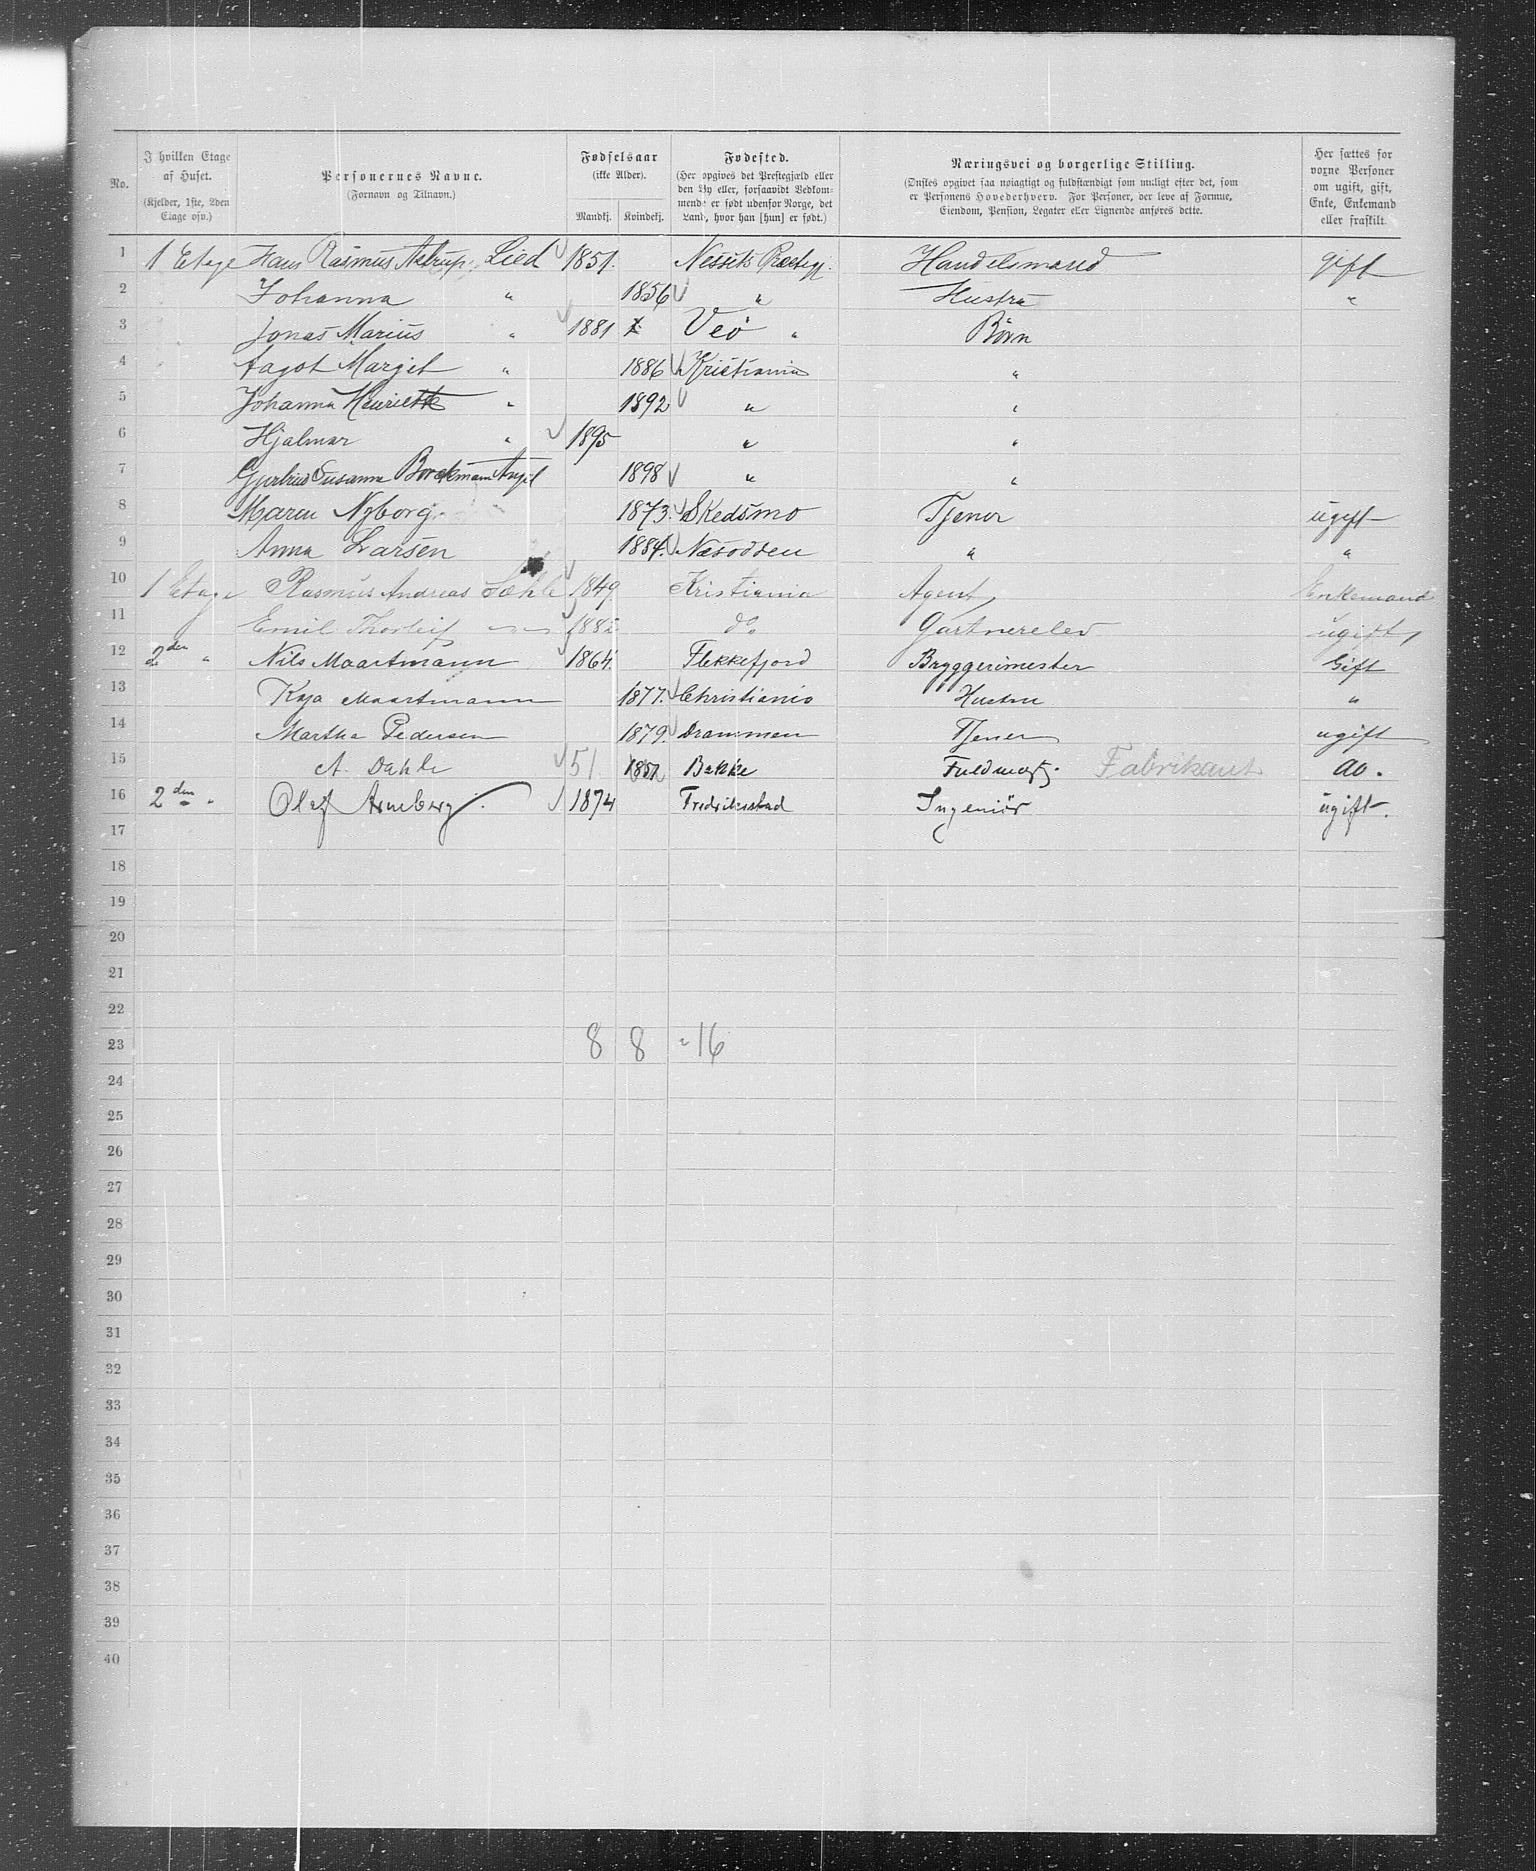 No. | I hvilken Etage af Huset. (Kjelder, 1ste, 2den Etage osv.) | Personernes Navne. (Fornavn og Tilnavn.) | Fødselsaar (ikke Alder). Mandkj. | Kvindekj. | Fødested. (Her opgives det Prestegjæld eller den By eller, forsaavidt Vedkommende er født udenfor Norge, det Land, hvor han [hun] er født.) | Næringsvei og borgerlige Stilling. (Ønskes opgivet saa nøiagtigt og fuldstændigt som muligt efter det, som er Personens Hovederhverv. For Personer, der leve af Formue, Eiendom, Pension, Legater eller Lignende anføres dette. | Her sættes for voxne Personer om ugift, gift, Enke, Enkemand eller fraskilt.
1 | 1 Etage | Hans Rasmus Astrup Lied | 1851. | | Nessets Præstegj. | Handelsmand | gift
2 | | Johanna " | | 1856 | " | Hustru | "
3 | | Jonas Marius " | 1881 | | Veö " | Börn |
4 | | Aagot Margit " | | 1886 | Kristiania | " |
5 | | Johanna Henriette " | | 1892 | " | " |
6 | | Hjalmar " | 1895 | | " | " |
7 | | Gjertrud Susanna Borckmann Angel | | 1898 | " | " |
8 | | Maren Nyborg. | | 1873. | Skedsmo | Tjener | ugift
9 | | Anna Larsen | | 1884. | Næsodden | " | "
10 | 1 Etage | Rasmus Andreas Sæhle | 1849 | | Kristiania | Agent | Enkemand
11 | | Emil Thorleif | 1882 | | do. | Gartnerelev | ugift
12 | 2den " | Nils Maartmann | 1864. | | Flekkefjord | Bryggerimester | Gift
13 | | Kaja Maartmann | | 1877. | Christiania | Hustru | "
14 | | Martha Pedersen | | 1879. | Drammen | Tjener | ugift
15 | | A. Dahle | 51. | 1851 | Bakke | Fuldmægt. Fabrikant | do.
16 | 2den " | Olaf Arneberg. | 1874 | | Fredrikstad | Ingeniör | ugift.
17
18
19
20
21
22
23 | | | 8 | 8 | = 16
24
25
26
27
28
29
30
31
32
33
34
35
36
37
38
39
40